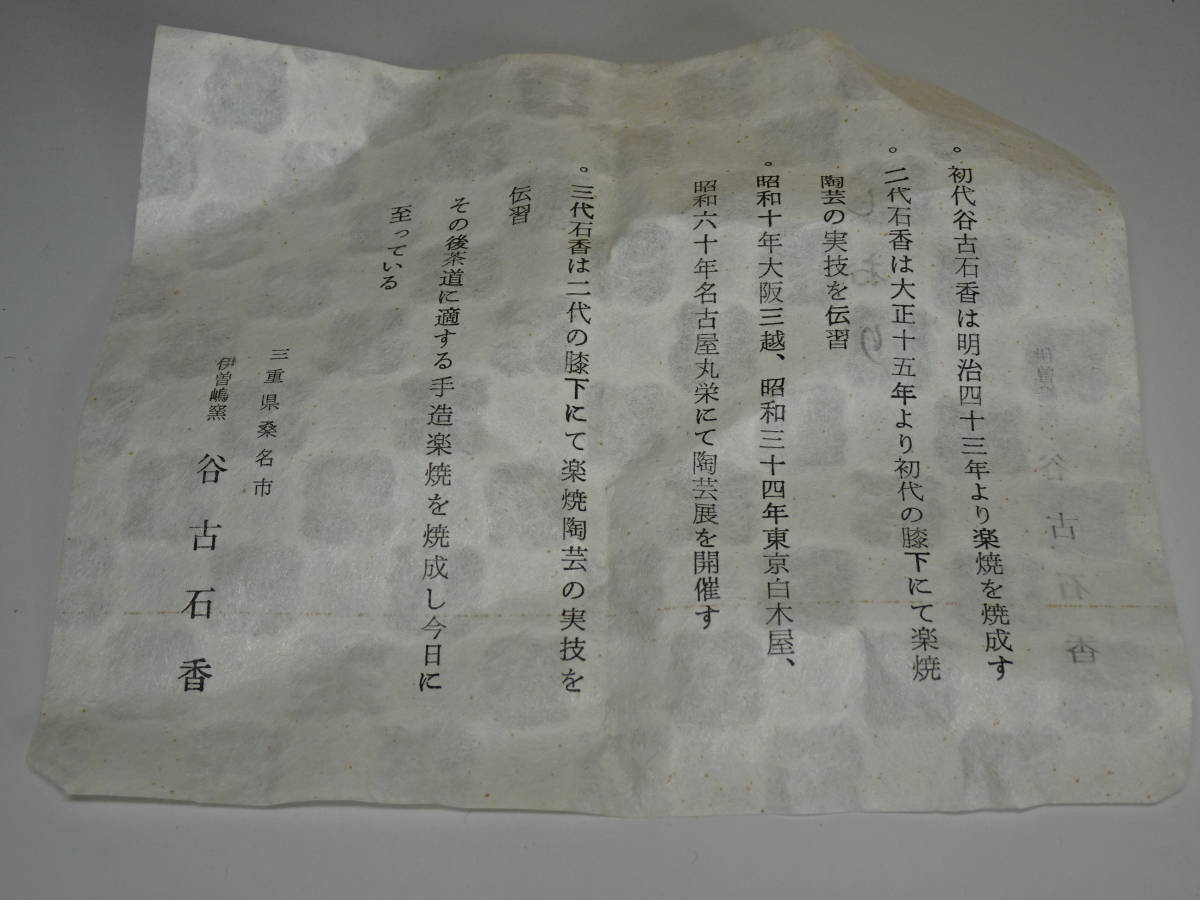 。初代谷古石香は明治四十三年より楽焼を焼成す
。二代石香は大正十五年より初代の膝下にて楽焼
陶芸の実技を伝習
。昭和十年大阪三越、昭和三十四年東京白木屋、
昭和六十年名古屋丸栄にて陶芸展を開催す
。三代石香は二代の膝下にて楽焼陶芸の実技を
伝習
その後茶道に適する手造楽焼を焼成し今日に
至っている
三重県桑名市
伊曽嶋窯 谷古石香
しおり
伊曽嶋窯 谷古石香